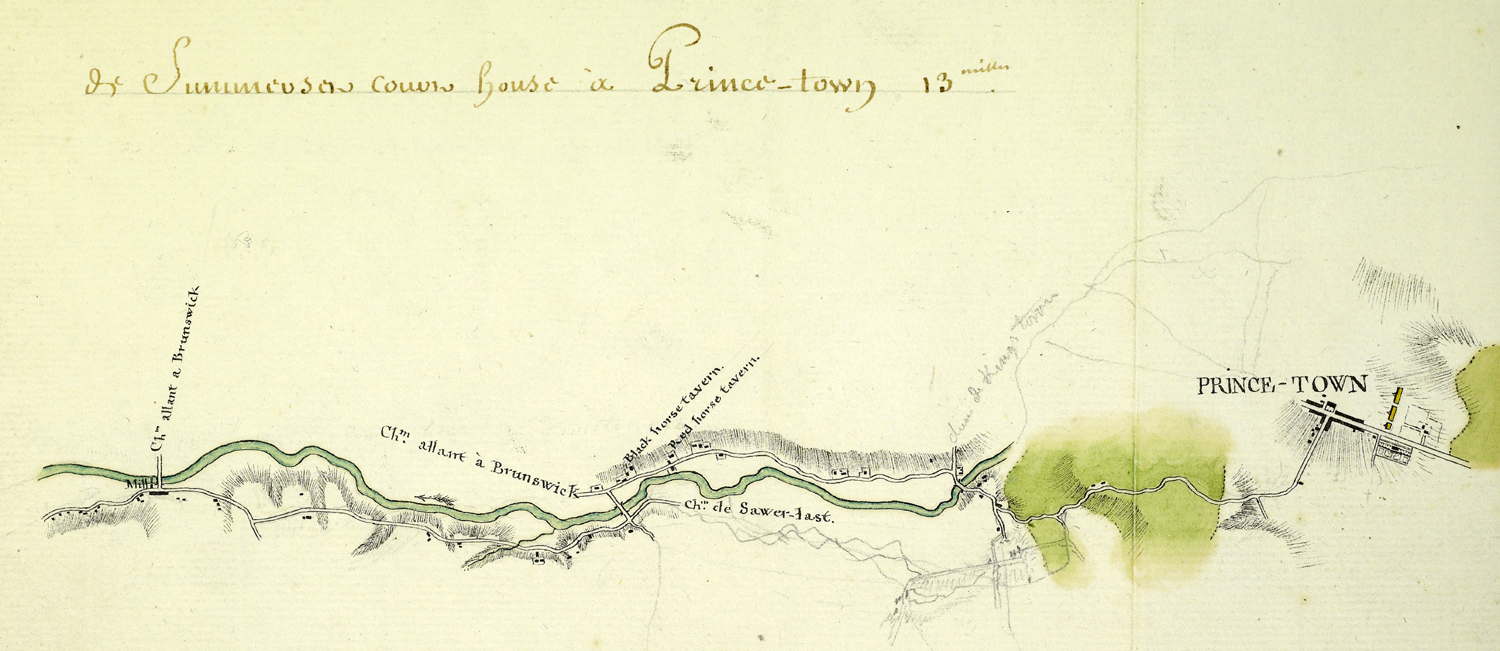 de Summerset couvr house à Prince-town 13 milles
Chm. allant a Brunswick
Mill
Chm. allant à Brunswick
Black horse tavern.
Red horse tavern.
Chm. de Sawer-last.
chm de Kings town
PRINCE-TOWN